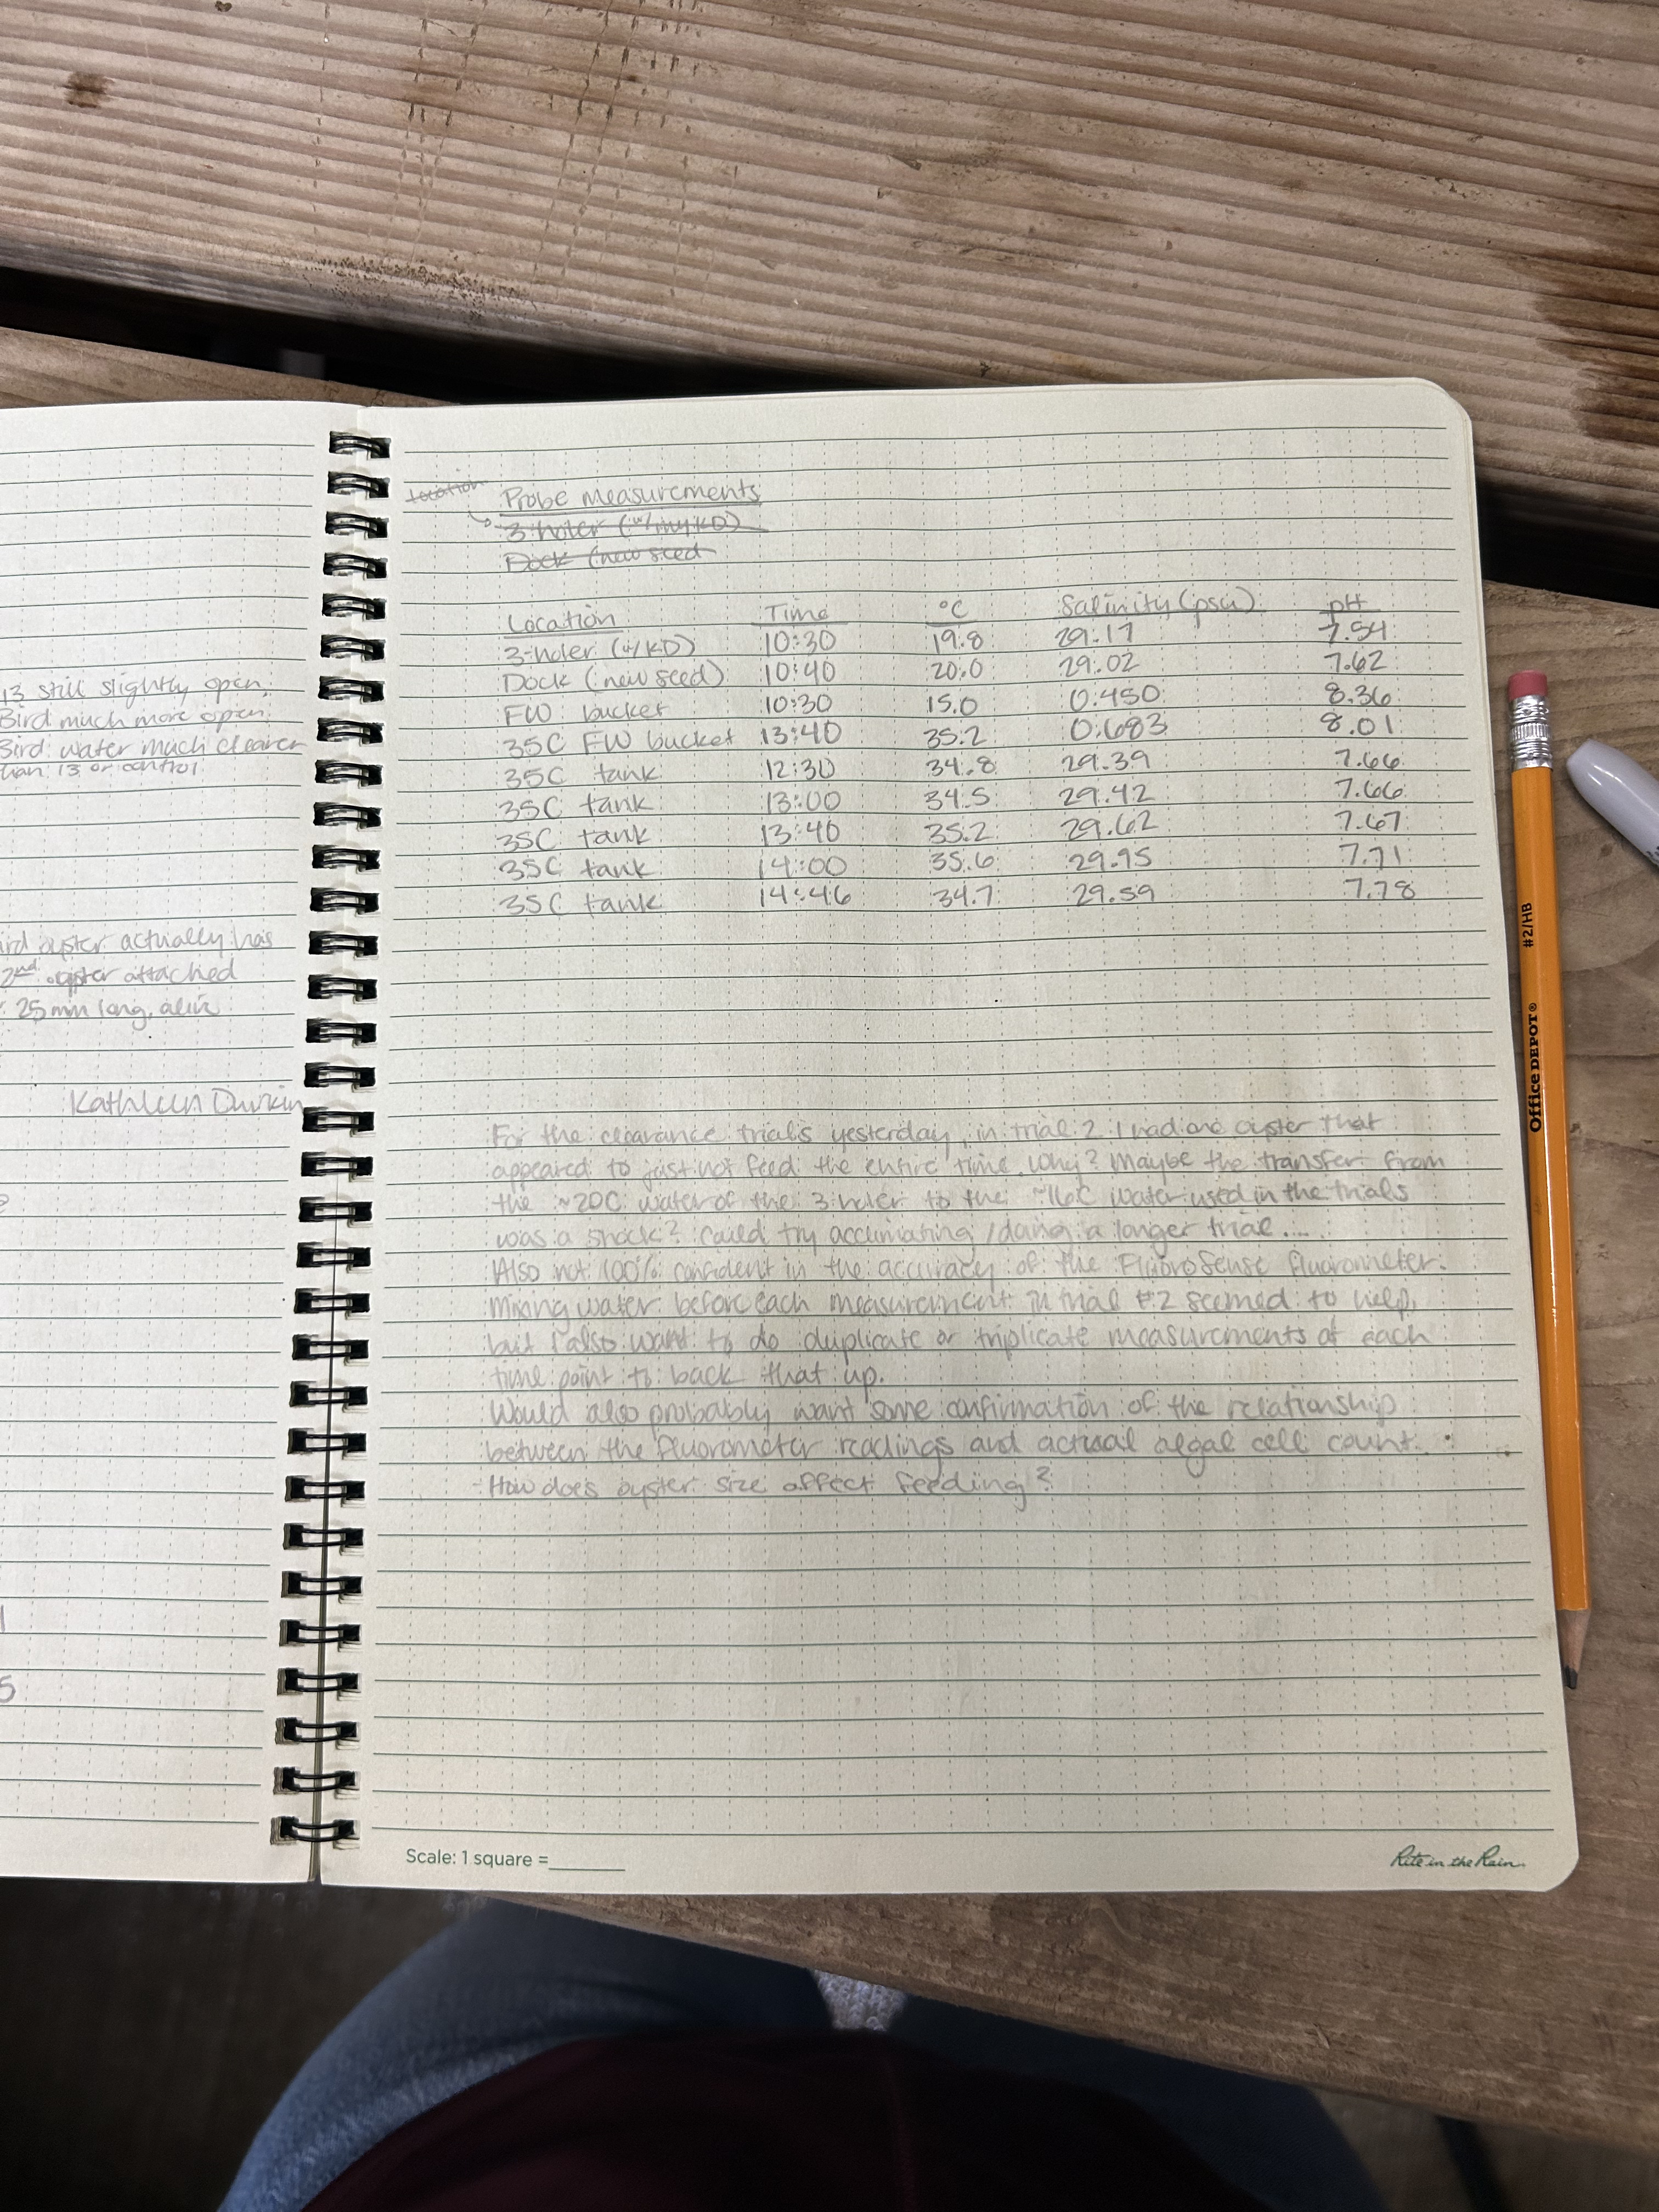 13 still slightly open,
Bird much more open
Bird water much clearer
than 13 or control
oyster actually has
2nd oyster attached
25mm long, alive
Kathleen Durkin
5
location
Probe measurements
3-holer (w/ KD)
Dock (new seed
Location Time °C Salinity (psu) pH
3-holer (w/ KD) 10:30 19.8 29.17 7.54
Dock (new seed) 10:40 20.0 29.02 7.62
FW bucket 10:30 15.0 0.450 8.36
35C FW bucket 13:40 35.2 0.683 8.01
35C tank 12:30 34.8 29.39 7.66
35C tank 13:00 34.5 29.42 7.66
35C tank 13:40 35.2 29.62 7.67
35C tank 14:00 35.6 29.95 7.71
35C tank 14:46 34.7 29.59 7.78
For the clearance trials yesterday, in trial 2 I had one oyster that
appeared to just not feed the entire time. Why? Maybe the transfer from
the ~20C water of the 3-holer to the ~16C water used in the trials
was a shock? Could try acclimating / doing a longer trial....
Also not 100% confident in the accuracy of the FluoroSense fluorometer.
Mixing water before each measurement in trial #2 seemed to help,
but I also want to do duplicate or triplicate measurements at each
time point to back that up.
Would also probably want some confirmation of the relationship
between the fluorometer readings and actual algal cell count..
- How does oyster size affect feeding?
Scale: 1 square =
Rite in the Rain
#2/HB
Office DEPOT®